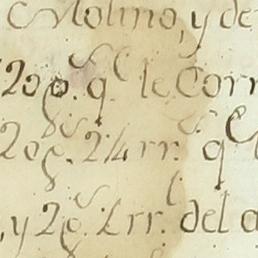 Molino, y de
20 p.s q.e le Corr
20 p.s 2 1/4 rr.s q.e
, y 2 p.s rr.s del a